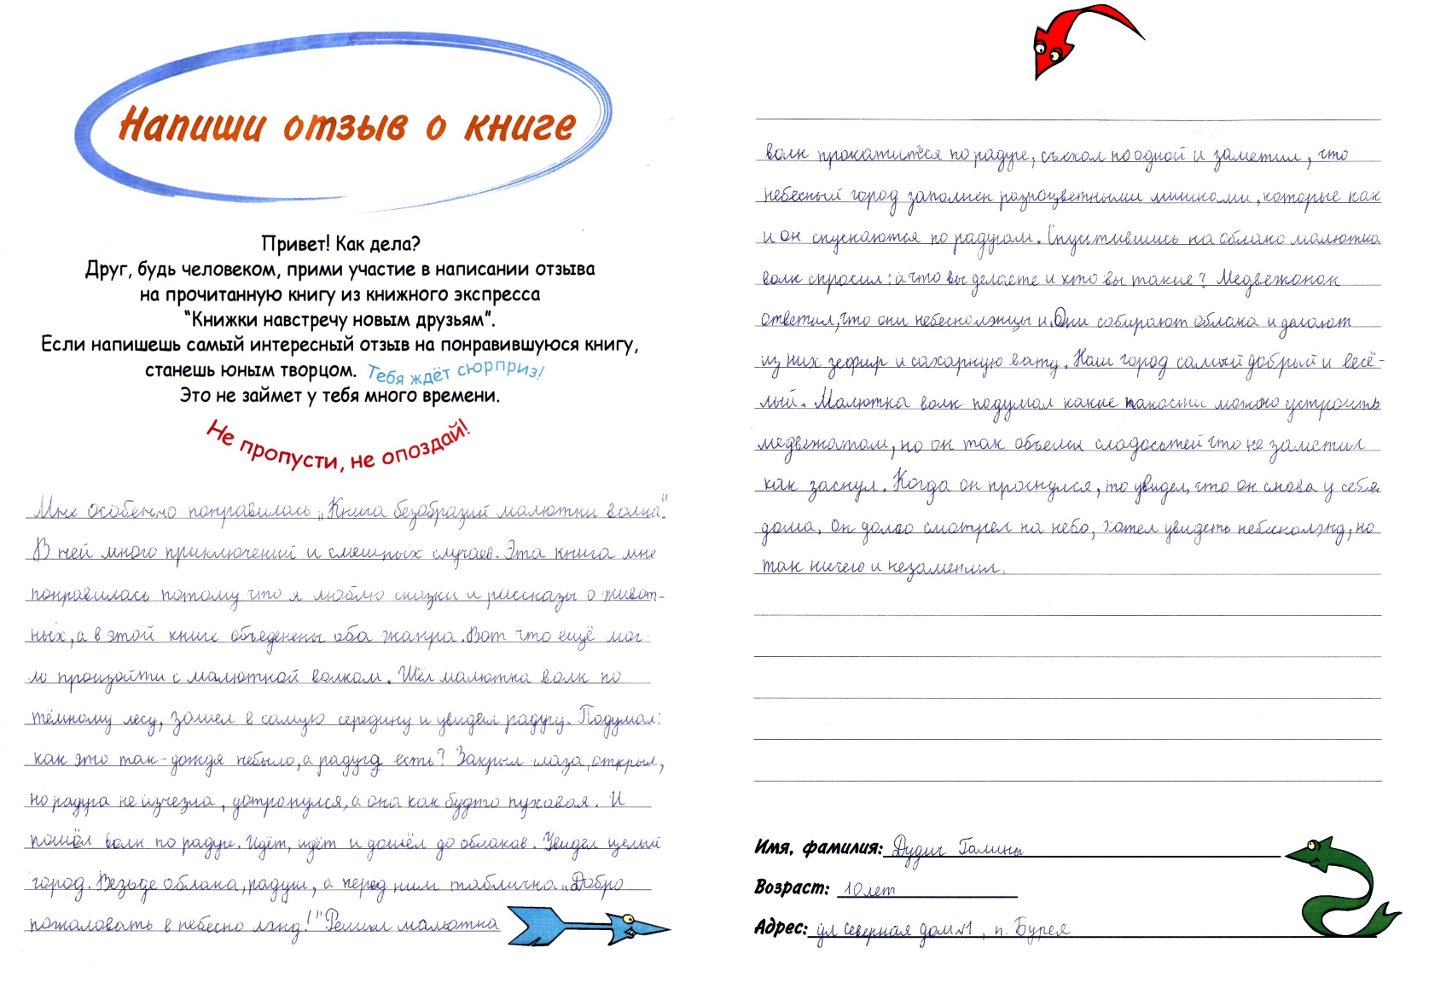 Напиши отзыв о книге
Привет! Как дела?
Друг, будь человеком, прими участие в написании отзыва
на прочитанную книгу из книжного экспресса
"Книжки навстречу новым друзьям".
Если напишешь самый интересный отзыв на понравившуюся книгу,
станешь юным творцом. Тебя ждёт сюрприз!
Это не займет у тебя много времени.
Не пропусти, не опоздай!
Мне особенно понравилась „Книга безобразий малютки волка".
В ней много приключений и смешных случаев. Эта книга мне
понравилась потому что я люблю сказки и рассказы о живот-
ных, а в этой книге объеденены оба жанра. Вот что ещё мог-
ло произойти с малюткой волком. Шёл малютка волк по
тёмному лесу, зашел в самую середину и увидел радугу. Подумал:
как это так - дождя небыло, а радуга есть? Закрыл глаза, открыл,
но радуга не изчезла, дотронулся, а она как будто пуховая. И
пошёл волк по радуге. Идёт, идёт и дошёл до облаков. Увидел целый
город. Везьде облака, радуги, а перед ним табличка „Добро
пожаловать в небесно лэнд!" Решил малютка
волк прокатится по радуге, съехал по одной и заметил, что
небесный город заполнен разноцветными мишками, которые как
и он спускаются по радугам. Спустившись на облако малютка
волк спросил: а что вы делаете и кто вы такие? Медвежонок
ответил, что они небеснолэнцы и. Они собирают облака и делают
из них зефир и сахарную вату. Наш город самый добрый и весё-
лый. Малютка волк подумал какие пакости можно устроить
медвежатам, но он так объелся сладосьтей что не заметил
как заснул. Когда он проснулся, то увидел, что он снова у себя
дома. Он долго смотрел на небо, хотел увидеть небеснолэнд, но
так ничего и незаметил.
Имя, фамилия: Дудич Галины
Возраст: 10 лет
Адрес: ул северная дом №1, п. Бурея